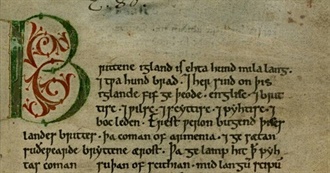 Brittene igland is ehta hund mila lang.
⁊ tƿa hund brad. ⁊ her sind on þis
iglande fif geþeode. englisc. ⁊ brit
tisc. ⁊ ƿilsc. ⁊ scyttisc. ⁊ pyhtisc. ⁊
boc leden. Erest ƿeron bugend þises
landes brittes. þa coman of armenia. ⁊ gesætan
suðeƿearde bryttene ærost. Þa gelamp hit ꝥ pyh
tas coman suþan of scithian. mid langū scipū